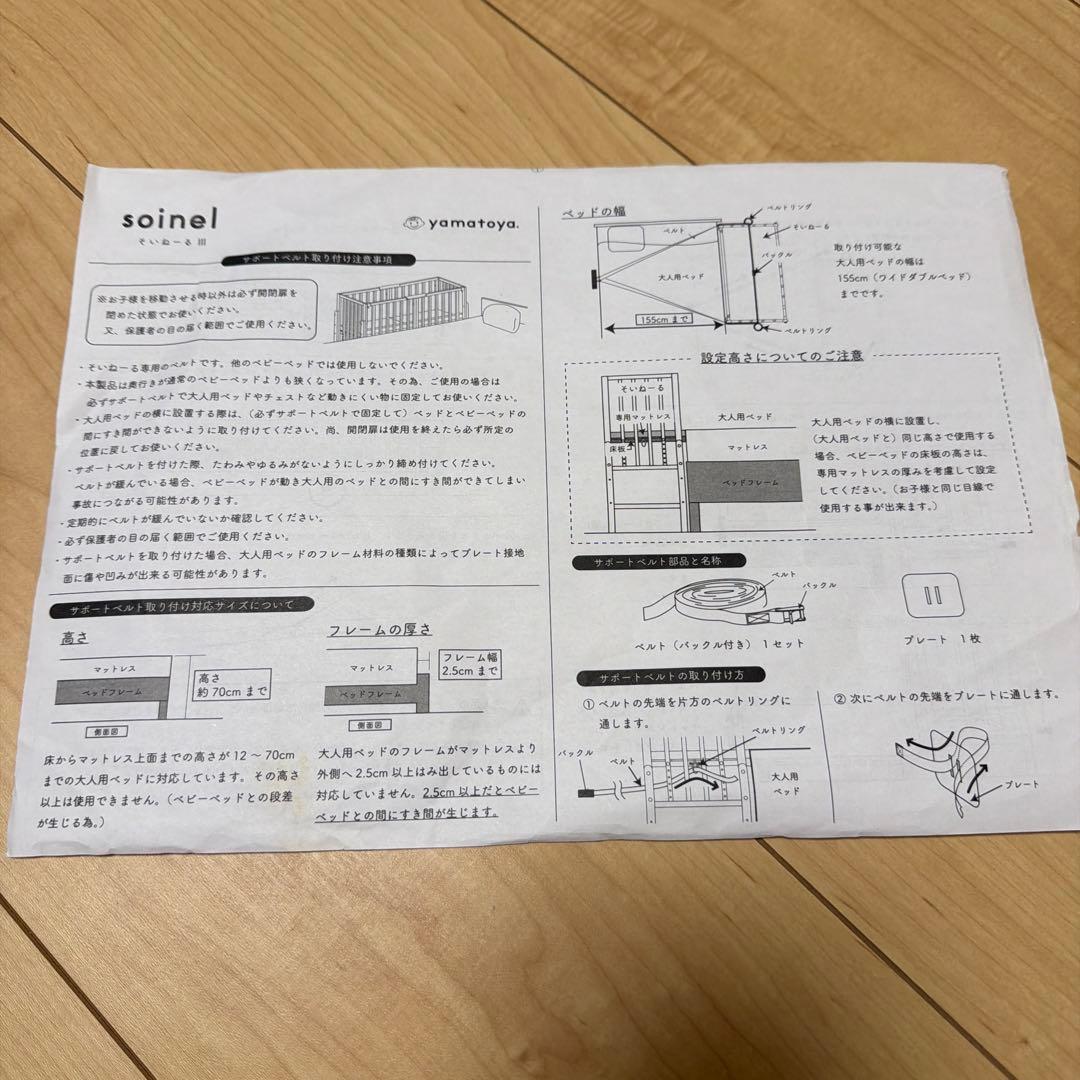 soinel
そいねーる III
yamatoya.
サポートベルト取り付け注意事項
※お子様を移動させる時以外は必ず開閉扉を
閉めた状態でお使いください。
又、保護者の目の届く範囲でご使用ください。
・そいねーる専用のベルトです。他のベビーベッドでは使用しないでください。
・本製品は奥行きが通常のベビーベッドよりも狭くなっています。その為、ご使用の場合は
必ずサポートベルトで大人用ベッドやチェストなど動きにくい物に固定してお使いください。
・大人用ベッドの横に設置する際は、（必ずサポートベルトで固定して）ベッドとベビーベッドの
間にすき間ができないように取り付けてください。尚、開閉扉は使用を終えたら必ず所定の
位置に戻してお使いください。
・サポートベルトを付けた際、たわみやゆるみがないようにしっかり締め付けてください。
ベルトが緩んでいる場合、ベビーベッドが動き大人用のベッドとの間にすき間ができてしまい
事故につながる可能性があります。
・定期的にベルトが緩んでいないか確認してください。
・必ず保護者の目の届く範囲でご使用ください。
・サポートベルトを取り付けた場合、大人用ベッドのフレーム材料の種類によってプレート接地
面に傷や凹みが出来る可能性があります。
サポートベルト取り付け対応サイズについて
高さ
マットレス
ベッドフレーム
高さ
約 70cm まで
側面図
床からマットレス上面までの高さが 12 〜 70cm
までの大人用ベッドに対応しています。その高さ
以上は使用できません。（ベビーベッドとの段差
が生じる為。）
フレームの厚さ
マットレス
ベッドフレーム
フレーム幅
2.5cm まで
側面図
大人用ベッドのフレームがマットレスより
外側へ 2.5cm 以上はみ出しているものには
対応していません。2.5cm 以上だとベビー
ベッドとの間にすき間が生じます。
ベッドの幅
ベルトリング
そいねーる
ベルト
バックル
大人用ベッド
155cm まで
ベルトリング
取り付け可能な
大人用ベッドの幅は
155cm（ワイドダブルベッド）
までです。
設定高さについてのご注意
そいねーる
専用マットレス
床板
大人用ベッド
マットレス
ベッドフレーム
大人用ベッドの横に設置し、
（大人用ベッドと）同じ高さで使用する
場合、ベビーベッドの床板の高さは、
専用マットレスの厚みを考慮して設定
してください。（お子様と同じ目線で
使用する事が出来ます。）
サポートベルト部品と名称
ベルト
バックル
ベルト（バックル付き）1 セット
プレート 1 枚
サポートベルトの取り付け方
① ベルトの先端を片方のベルトリングに
通します。
バックル
ベルト
ベルトリング
大人用
ベッド
② 次にベルトの先端をプレートに通します。
プレート